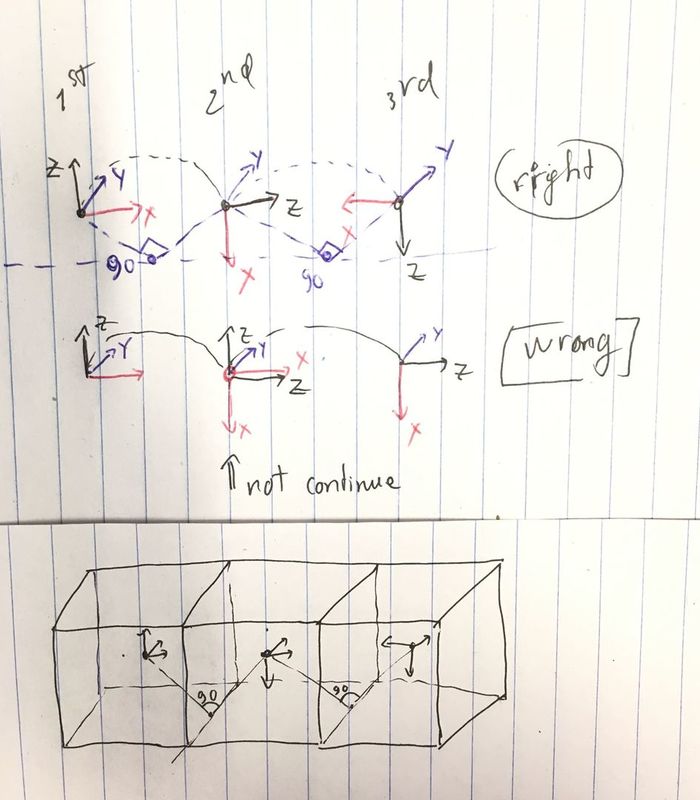 1st 2nd 3rd
Z Y X
Y Z X
Y X Z
right
90 90
Z Y
Z Y X Z X
Y Z X
wrong
not continue
90 90